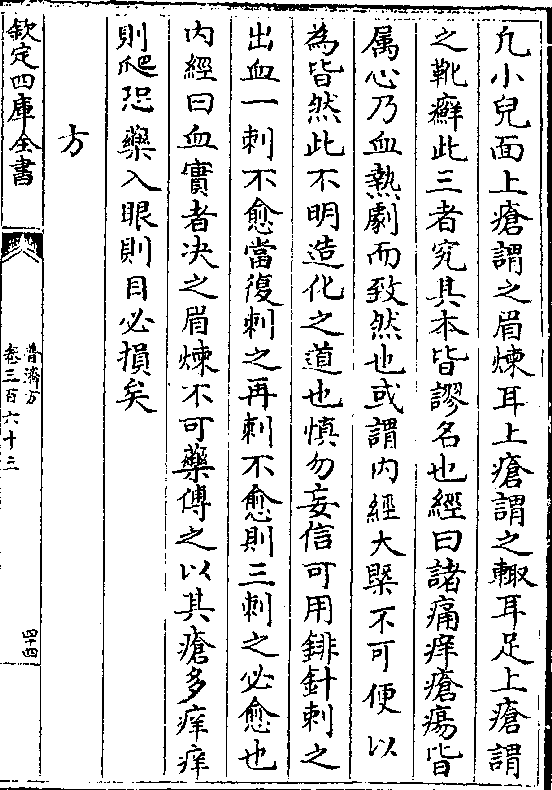 凢小兒面上瘡謂之眉煉耳上瘡謂之輙耳足上瘡謂
之靴癬此三者究其本皆謬名也經曰諸痛痒瘡瘍皆
属心乃血熱劇而致然也或謂内經大槩不可便以
為皆然此不明造化之道也慎勿妄信可用鋒針刺之
出血一刺不愈當復刺之再刺不愈則三刺之必愈也
内經曰血實者决之眉煉不可藥傅之以其瘡多痒痒
則爬恐藥入眼則目必損矣
方
欽定四庫全書
普濟方
卷三百六十三
四十四